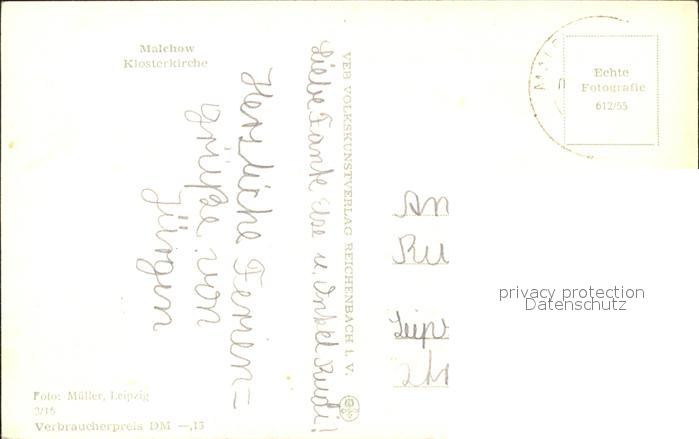 Malchow
Klosterkirche
Liebe Tante Else u. Onkel Rudi!
Herzliche Ferien=
grüße von
Jürgen
VEB VOLKSKUNSTVERLAG REICHENBACH I. V.
Echte
Fotografie
612/55
An
Ru
Leip
privacy protection
Datenschutz
Foto: Müller, Leipzig
3/16
Verbraucherpreis DM —,15